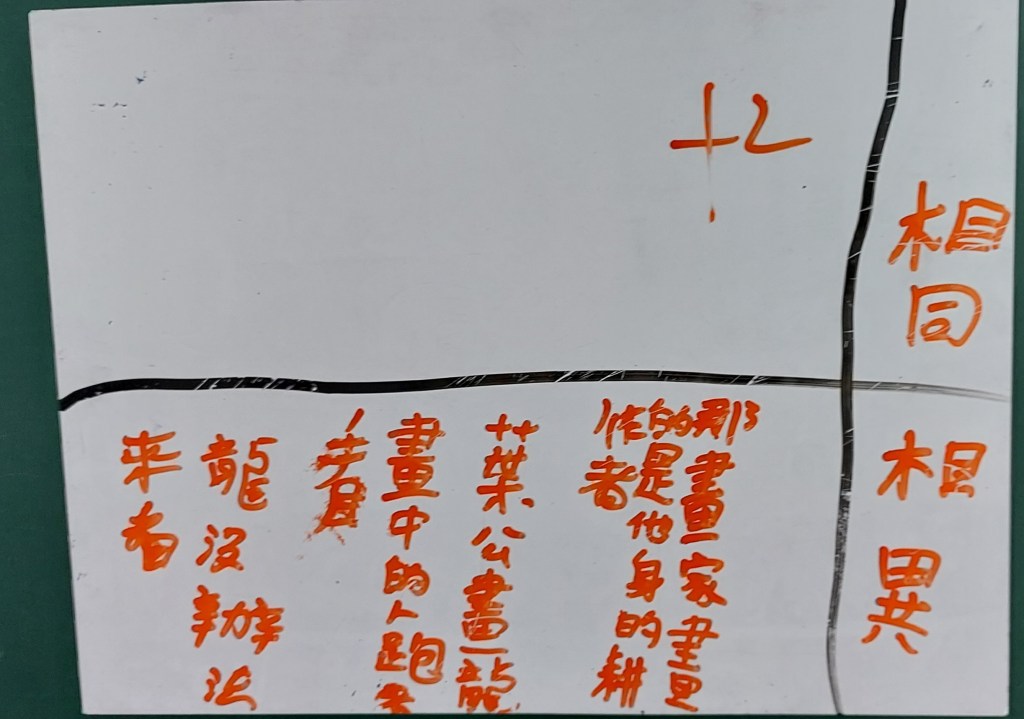 相同
相異
十2
那畫家畫
的是他身的耕
作者
葉公畫龍
畫中的人跑
龍沒辦法
來看